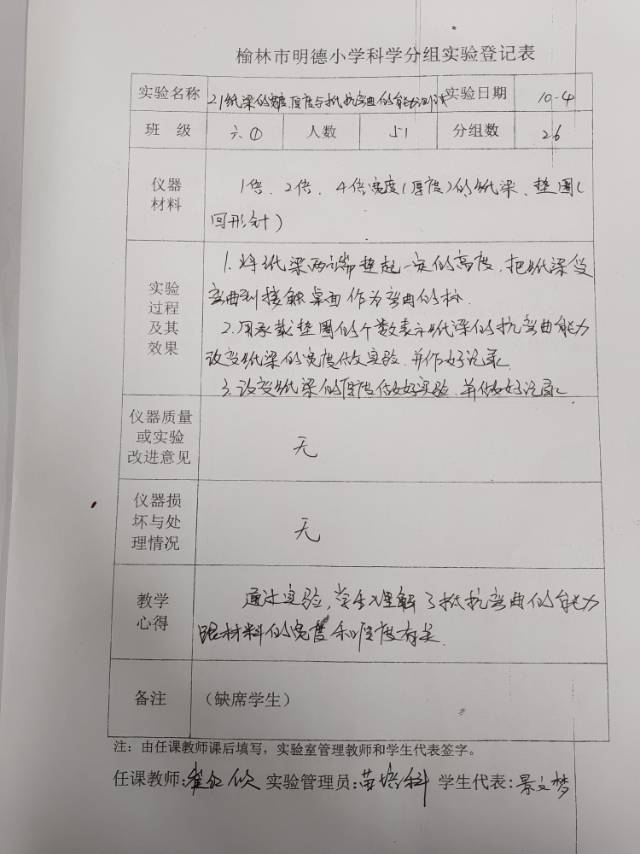 榆林市明德小学科学分组实验登记表
实验名称 21纸梁的宽厚度与抵抗弯曲的能力测试 实验日期 10-4
班 级 六① 人数 51 分组数 26
仪器材料 1倍、2倍、4倍宽度(厚度)的纸梁、垫圈(
回形针)
实验过程及其效果 1.将纸梁两端垫起一定的高度,把纸梁受
弯曲到接触桌面作为弯曲的标
2.用承载垫圈的个数表示纸梁的抗弯曲能力
改变纸梁的宽度做实验,并作好记录
3.改变纸梁的厚度做好实验,并做好记录
仪器质量或实验改进意见 无
仪器损坏与处理情况 无
教学心得 通过实验,学生理解了抵抗弯曲的能力
跟材料的宽度和厚度有关
备注 (缺席学生)
注:由任课教师课后填写,实验室管理教师和学生代表签字。
任课教师: 实验管理员: 学生代表:景文梦